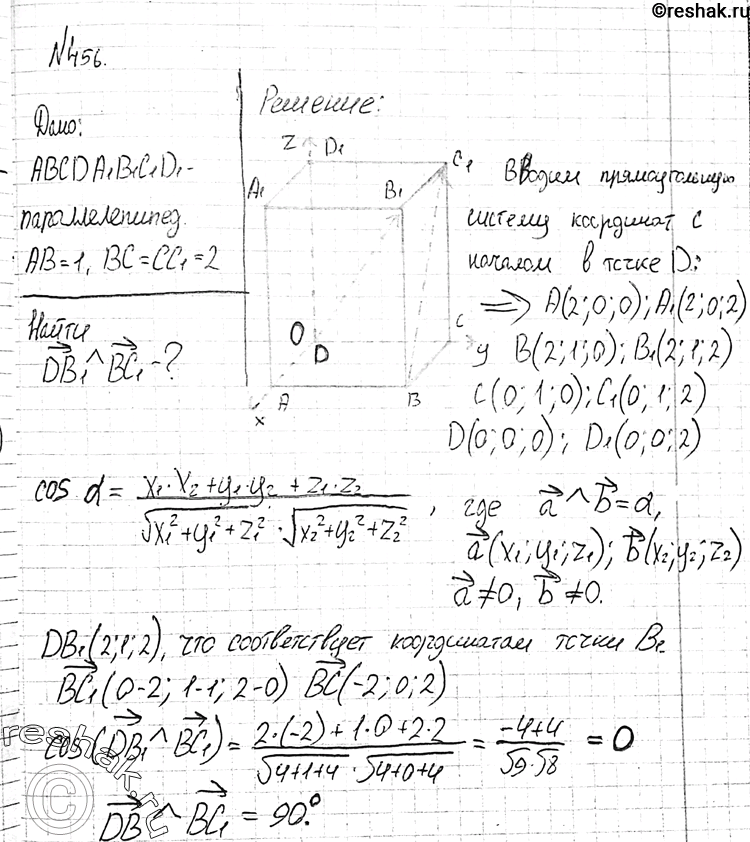 ©reshak.ru
№456.
Дано:
ABCDA₁B₁C₁D₁-
параллелепипед.
AB=1, BC=CC₁=2
Найти
DB₁^BC₁-?
Решение:
Z D₁ C₁
A₁ B₁
O D C y
A B
x
ВВодим прямоугольную
систему координат с
началом в точке D:
⇒ A(2;0;0); A₁(2;0;2)
B(2;1;0); B₁(2;1;2)
C(0;1;0); C₁(0;1;2)
D(0;0;0); D₁(0;0;2)
cos α = (x₁·x₂+y₁·y₂+z₁·z₂)/(√(x₁²+y₁²+z₁²)·√(x₂²+y₂²+z₂²)), где a^b=α,
a(x₁;y₁;z₁); b(x₂;y₂;z₂)
a≠0, b≠0.
DB₁(2;1;2), что соответствует координатам точки B₁
BC₁(0-2; 1-1; 2-0) BC(-2;0;2)
cos(DB₁^BC₁) = (2·(-2)+1·0+2·2)/(√(4+1+4)·√(4+0+4)) = (-4+4)/(√9·√8) = 0
DB^BC₁ = 90.°
reshak.ru
©